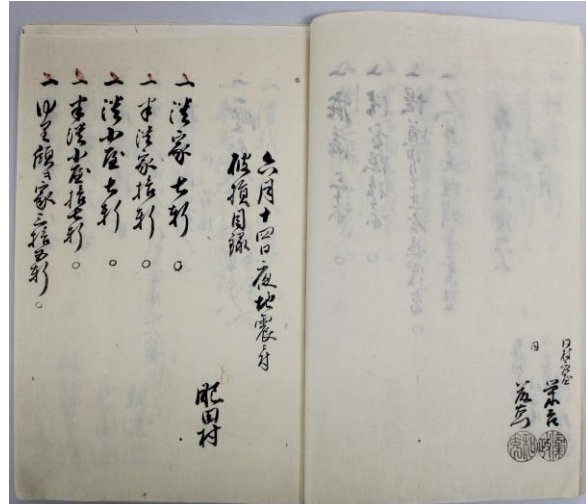 同村庄屋
同
六月十四日夜地震ニ付
破損目録
肥田村
一潰家七軒。
一半潰家拾軒。
一潰小屋七軒。
一半潰小屋拾七軒。
一ゆり傾キ家三拾五軒。